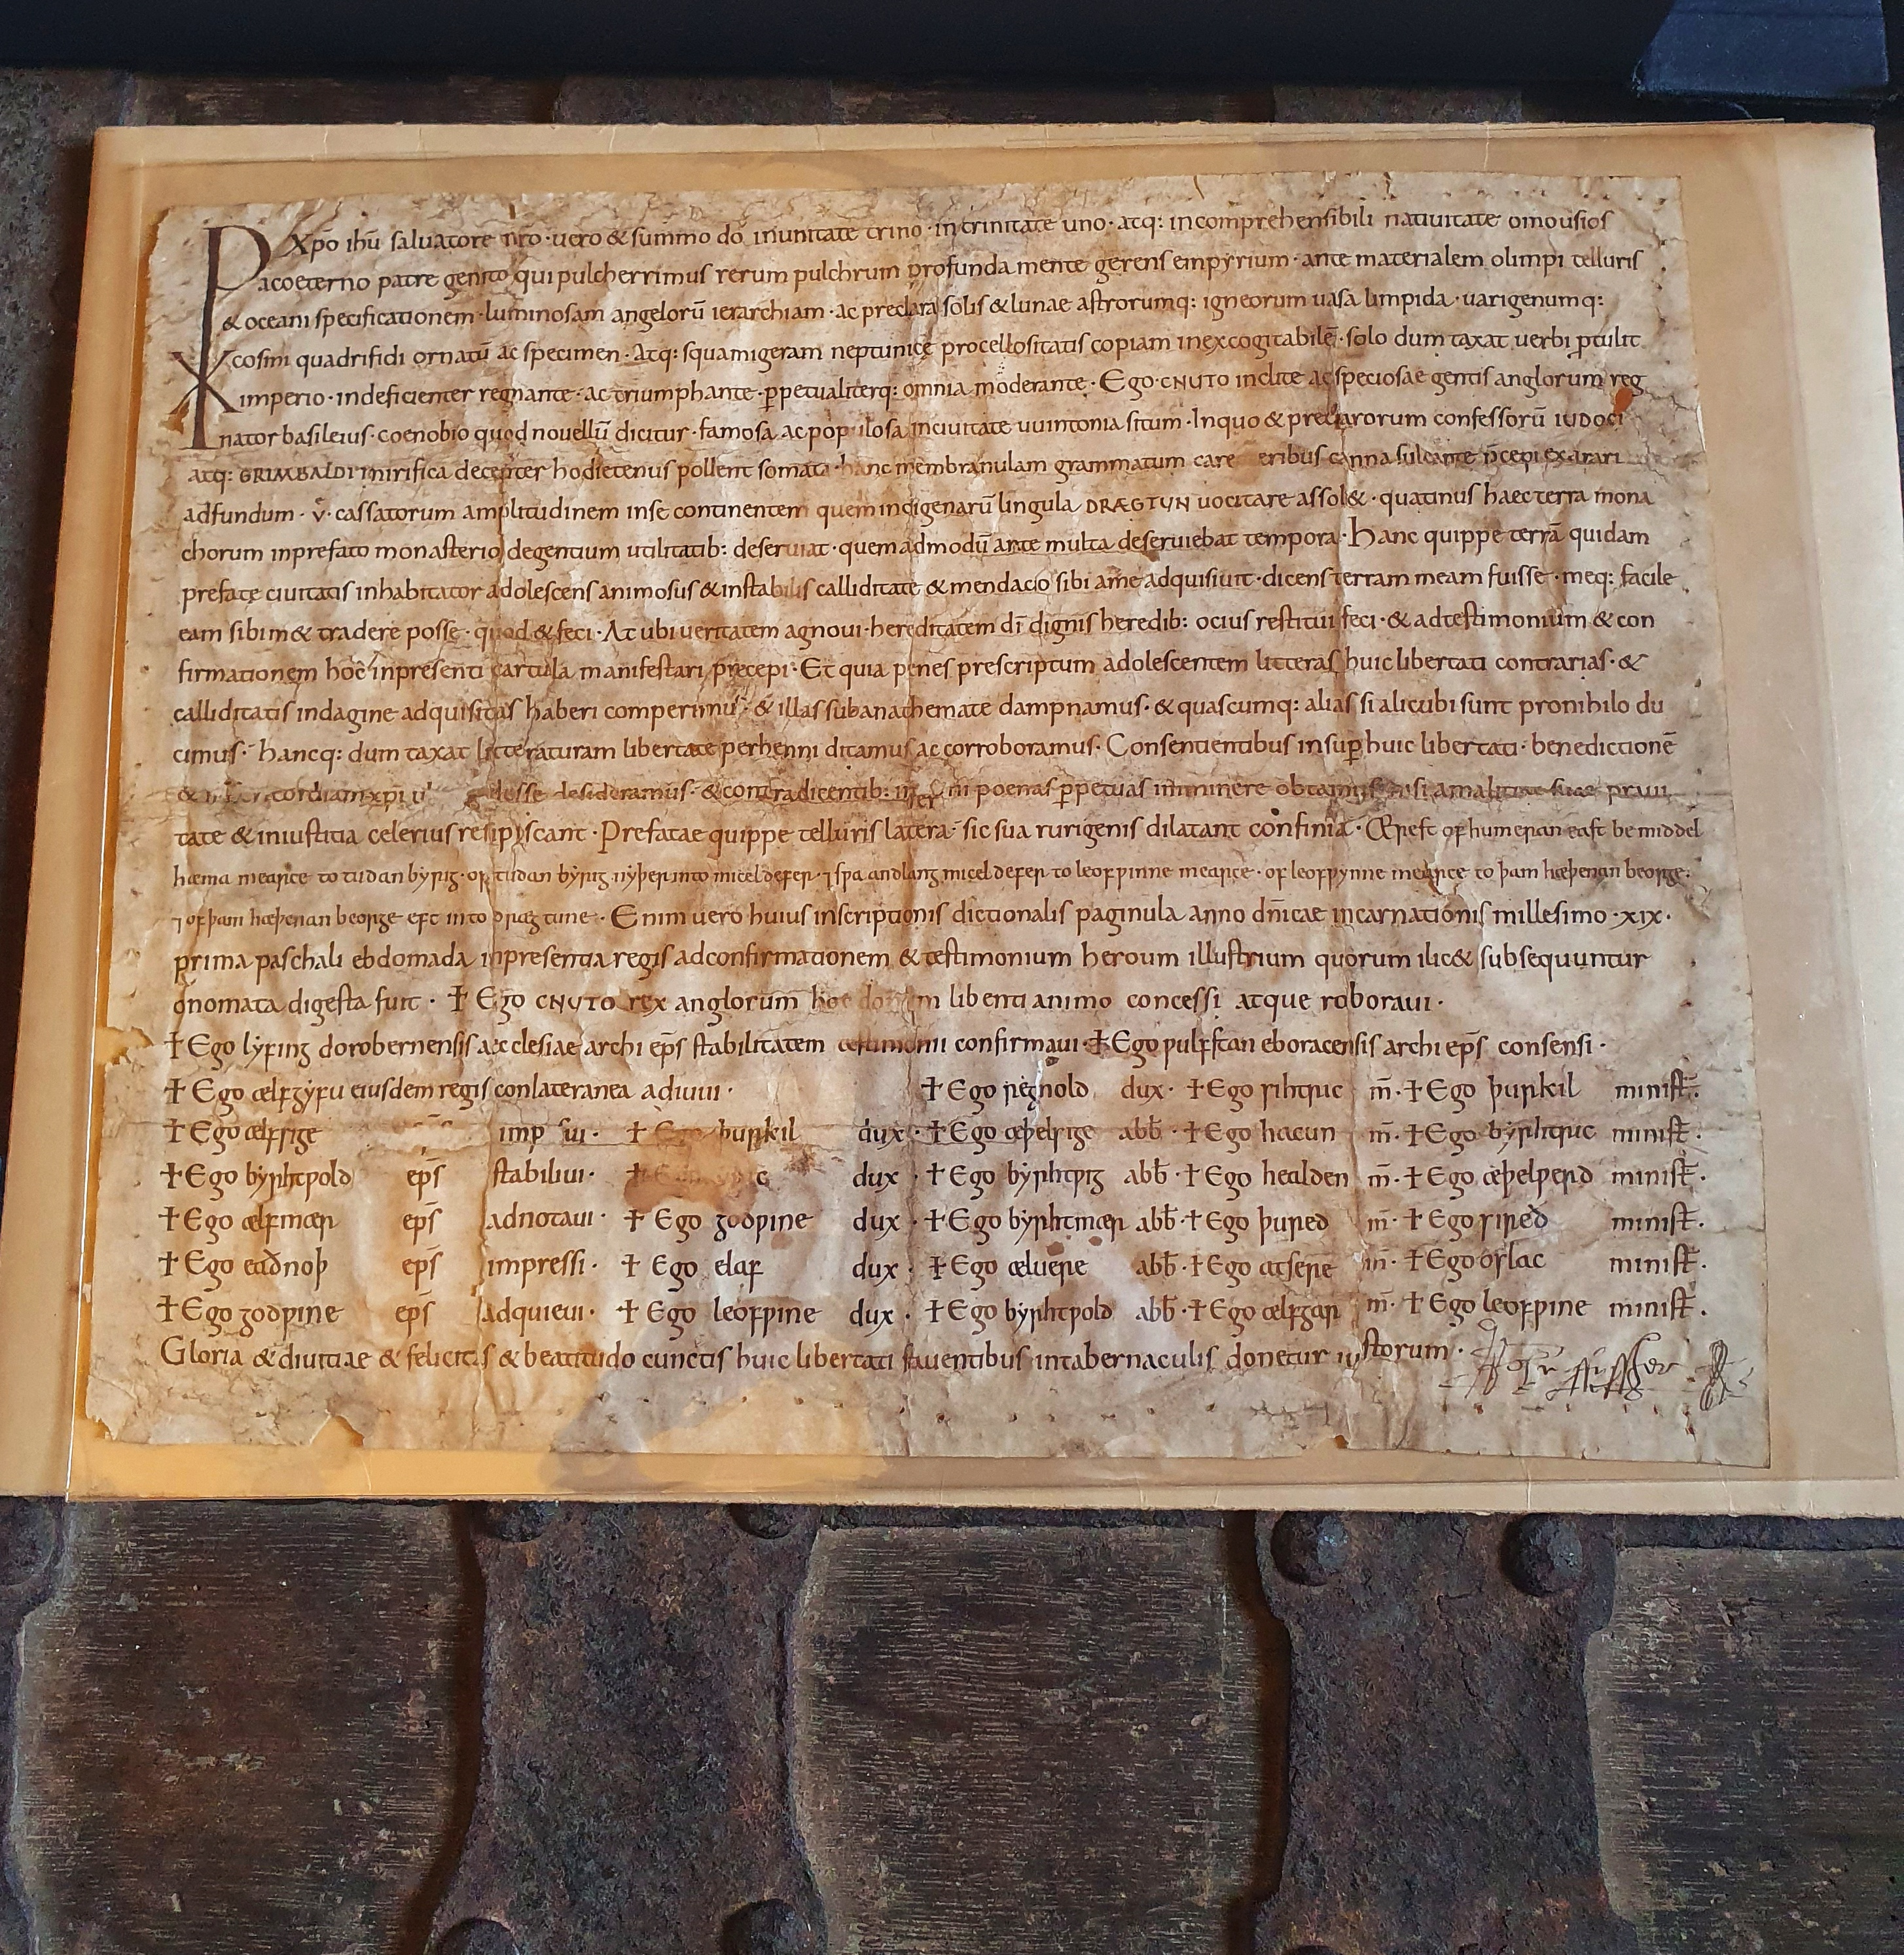 xp̄o ihū saluatore nr̄o · uero & summo dō inunitate trino · intrinitate uno · atq: incomprehensibili natiuitate omousios
acoeterno patre genito qui pulcherrimus rerum pulchrum profunda mente gerens empyrium · ante materialem olimpi telluris
& oceani specificationem · luminosam angelorū ierarchiam · ac preclara solis & lunae astrorumq: igneorum uasa limpida · uarigenumq:
cosmi quadrifidi ornatū ac specimen · Atq: squamigeram neptunice procellositatis copiam inexcogitabilē · solo dum taxat uerbi ꝑtulit
imperio · indeficienter regnante · ac triumphante · ꝑpetualiterq: omnia moderante · Ego · CNUTO inclite ac speciosae gentis anglorum reg
nator basileius · coenobio quod nouellū dicitur · famosa ac populosa inciuitate uuintonia situm · Inquo & preclarorum confessorū IUDOCI
atq: GRIMBALDI mirifica decenter hodietenus pollent somata · hanc membranulam grammatum care eribus canna sulcante p̄cepi exarari
adfundum · v̊ · cassatorum amplitudinem inse continentem quem indigenarū lingula DRÆGTUN uocitare assol& · quatinus haec terra mona
chorum inprefato monasterio degentium utilitatib: deseruiat · quemadmodū ante multa deseruiebat tempora · Hanc quippe terrā quidam
prefate ciuitatis inhabitator adolescens animosus & instabilis calliditate & mendacio sibi ame adquisiuit · dicens terram meam fuisse · meq: facile
eam sibim& tradere posse · quod & feci · At ubi ueritatem agnoui · hereditatem dī dignis heredib: ocius restitui feci · & adtestimonium & con
firmationem hoc inpresenti cartula manifestari precepi · Et quia penes prescriptum adolescentem litteras huic libertati contrarias · &
calliditatis indagine adquisitas haberi comperimus · & illas subanathemate dampnamus · & quascumq: alias si alicubi sunt pronihilo du
cimus · hancq: dum taxat litteraturam libertate perhenni ditamus ac corroboramus · Consentientibus insuꝑ huic libertati · benedictionē
& cordiam xp̄i desse desideramus · & contradicentib: poenas ꝑpetuas imminere obtamus nisi amalitiae suae praui
tate & iniustitia celerius resipiscant · Prefatae quippe telluris latera · sic sua rurigenis dilatant confinia · Ærest of humeran east be middel
hæma mearce to tudan byrig · of tudan byrig nyþer into micel defer · ⁊ swa andlang micel defer to leofwinne mearce · of leofwynne mearce to þam hæþenan beorge ·
⁊ of þam hæþenan beorge eft into dræg tune · Enim uero huius inscriptionis dictionalis paginula anno dn̄icae incarnationis millesimo · xix ·
prima paschali ebdomada inpresentia regis adconfirmationem & testimonium heroum illustrium quorum ilic& subsequuntur
onomata digesta fuit · ✝ Ego CNUTO rex anglorum hoc donum libenti animo concessi atque roboraui ·
✝ Ego lyfing dorobernensis æcclesiae archi ep̄s stabilitatem testimonii confirmaui · ✝ Ego wulfstan eboracensis archi ep̄s consensi ·
✝ Ego ælfgyfu eiusdem regis conlateranea adiuui · ✝ Ego regnold dux · ✝ Ego sihtric m̄ · ✝ Ego þurkil minist̄ ·
✝ Ego ælfsige ✝ Ego þurkil dux · ✝ Ego æþelsige abb̄ · ✝ Ego hacun m̄ · ✝ Ego byrhtric minist̄ ·
✝ Ego byrhtwold ep̄s stabiliui · ✝ dux · ✝ Ego byrhtwig abb̄ · ✝ Ego healden m̄ · ✝ Ego æþelwerd minist̄ ·
✝ Ego ælfmær ep̄s adnotaui · ✝ Ego godwine dux · ✝ Ego byrhtmær abb̄ · ✝ Ego þured m̄ · ✝ Ego sired minist̄ ·
✝ Ego eadnoþ ep̄s impressi · ✝ Ego elaf dux · ✝ Ego æluere abb̄ · ✝ Ego atsere m̄ · ✝ Ego oslac minist̄ ·
✝ Ego godwine ep̄s adquieui · ✝ Ego leofwine dux · ✝ Ego byrhtwold abb̄ · ✝ Ego ælfgar m̄ · ✝ Ego leofwine minist̄ ·
Gloria & diuitiae & felicitas & beatitudo cunctis huic libertati fauentibus intabernaculis donetur iustorum ·